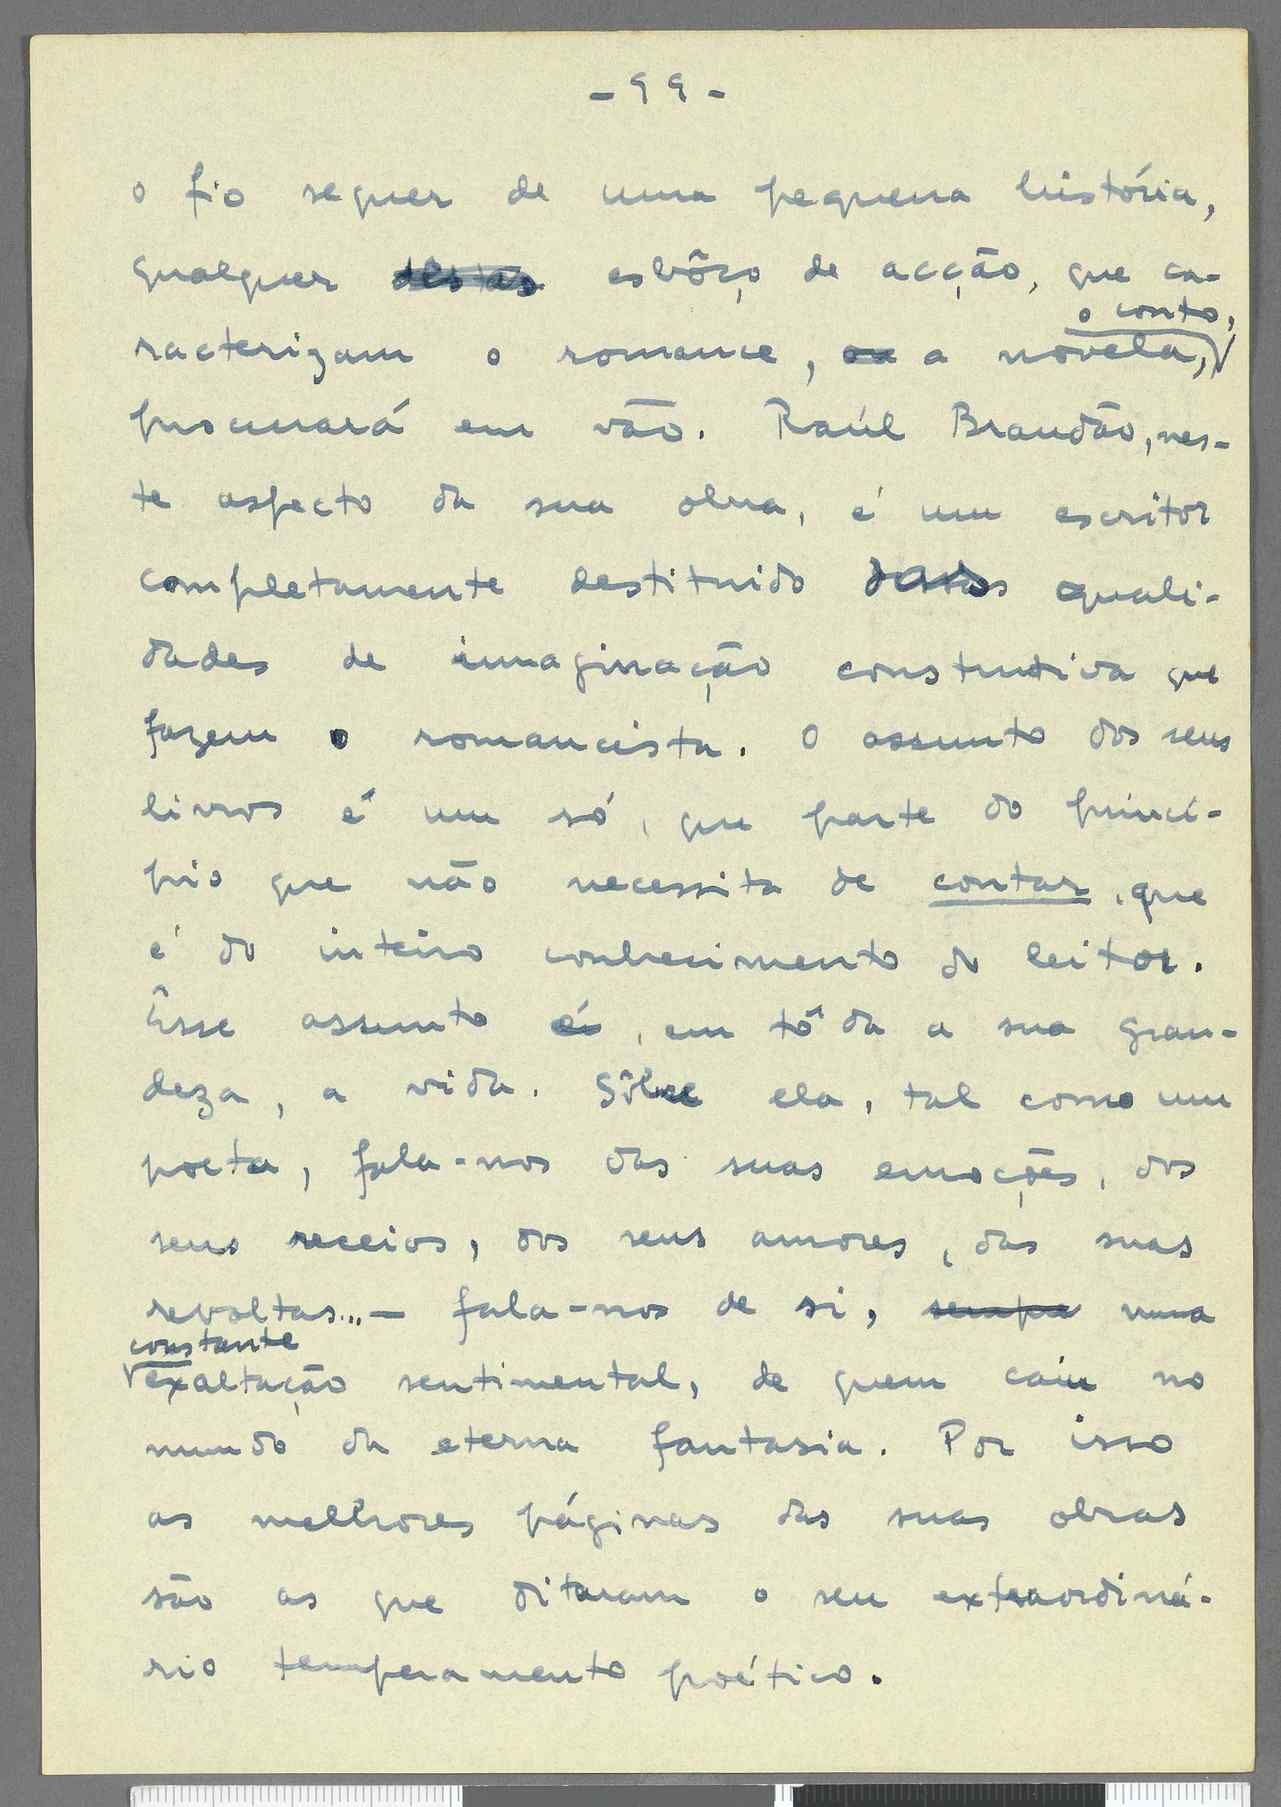 - 99 -
o fio sequer de uma pequena história,
qualquer destas esbôço de acção, que ca-
o conto,
racterizam o romance, ou a novela,
procurará em vão. Raúl Brandão, nes-
te aspecto da sua obra, é um escritor
completamente destituido quali-
dades de imaginação construtiva que
fazem o romancista. O assunto dos seus
livros é um só, que parte do princí-
pio que não necessita de contar, que
é do inteiro conhecimento do leitor.
Êsse assunto é, em tôda a sua gran-
deza, a vida. Sôbre ela, tal como um
poeta, fala-nos das suas emoções, dos
seus receios, dos seus amores, das suas
revoltas... — fala-nos de si, sempre numa
constante
exaltação sentimental, de quem caiu no
mundo da eterna fantasia. Por isso
as melhores páginas das suas obras
são as que ditaram o seu extraordiná-
rio temperamento poético.